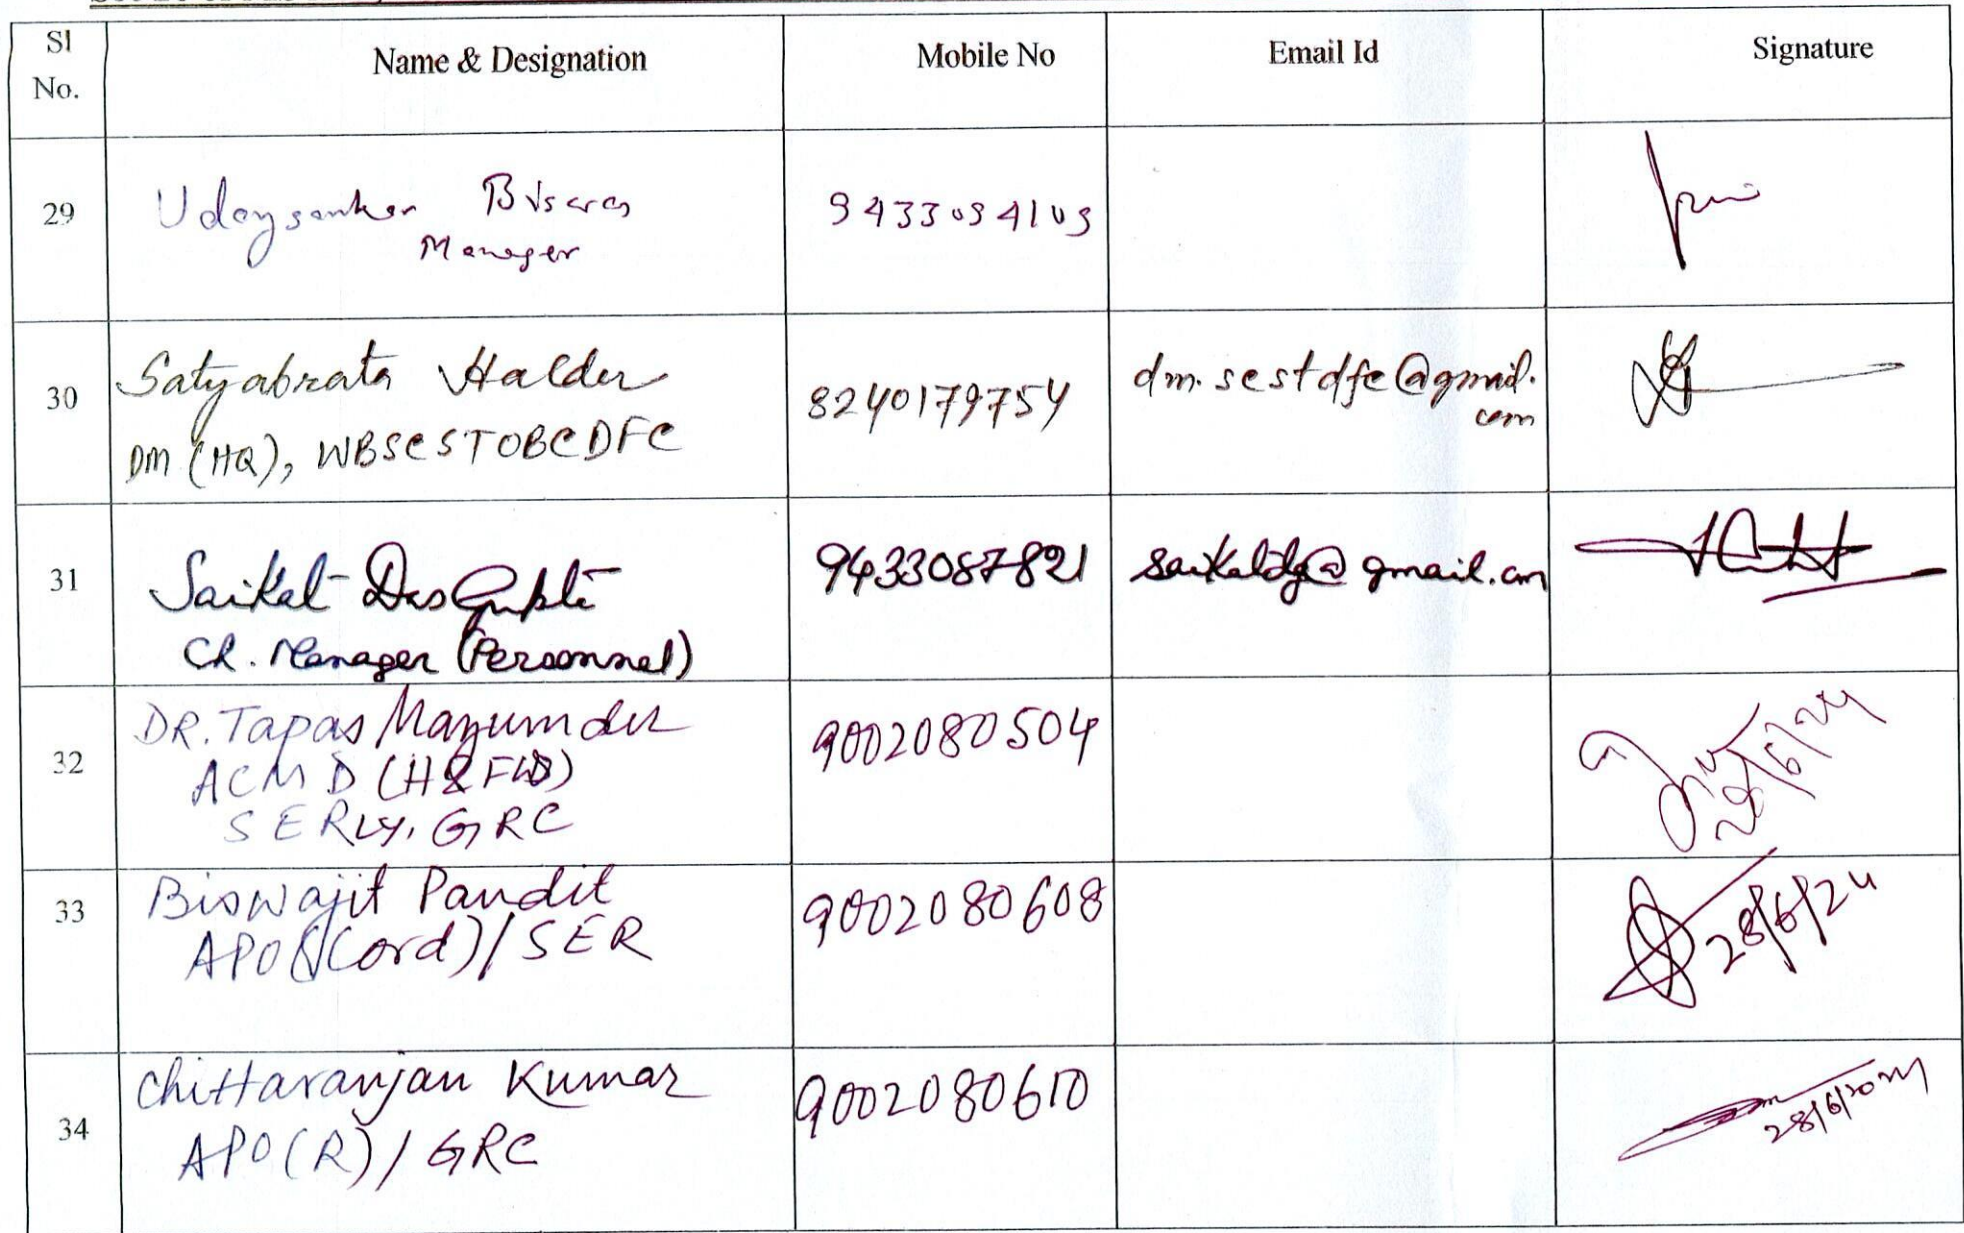 Sl No.
Name & Designation
Mobile No
Email Id
Signature
29
Udaysankar Biswas
Manager
9433094109
30
Satyabrata Halder
DM (HQ), WBSCSTOBCDFC
8240179754
dm.sestdfc@gmail.
com
31
Saikat DasGupta
Ch. Manager (Personnel)
9433087821
saikatdg@gmail.com
32
DR. Tapas Mazumder
ACMD (H&FW)
SERLY, GRC
9002080504
28/6/24
33
Biswajit Pandit
APO (Cord)/SER
9002080608
28/6/24
34
Chittaranjan Kumar
APO(R)/GRC
9002080610
28/6/2024